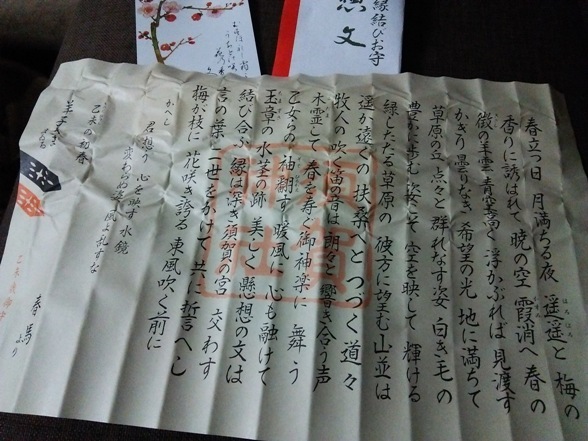 縁結びお守
想文
春立つ日 月満ちる夜 遥遥と 梅の
香りに誘はれて 暁の空 霞消へ 春の
徴の羊雲 青空高く 浮かぶれば 見渡す
かぎり 曇りなき 希望の光 地に満ちて
草原の丘 点々と 群れなす姿 白き毛の
豊かに歩む 姿にて 空を映して 輝ける
緑したたる 草原の 彼方に望む 山並は
遥か遠くの 扶桑へと つづく道々
牧人の 吹く笛の音は 朗々と 響き合う声
木霊して 春を寿ぐ 御神楽に 舞う
乙女らの 袖翻す 暖風に 心も融けて
玉章の 水茎の跡 美しく 懸想の文は
結び合ふ 縁は深き 須賀の宮 交わす
言の葉に 一世をかけて 共に誓へし
梅が枝に 花咲き誇る 東風吹く前に
かへし
君想う 心を映す 水鏡
変わらぬ姿 風よ乱すな
乙未の初春
羊子さま
春馬より